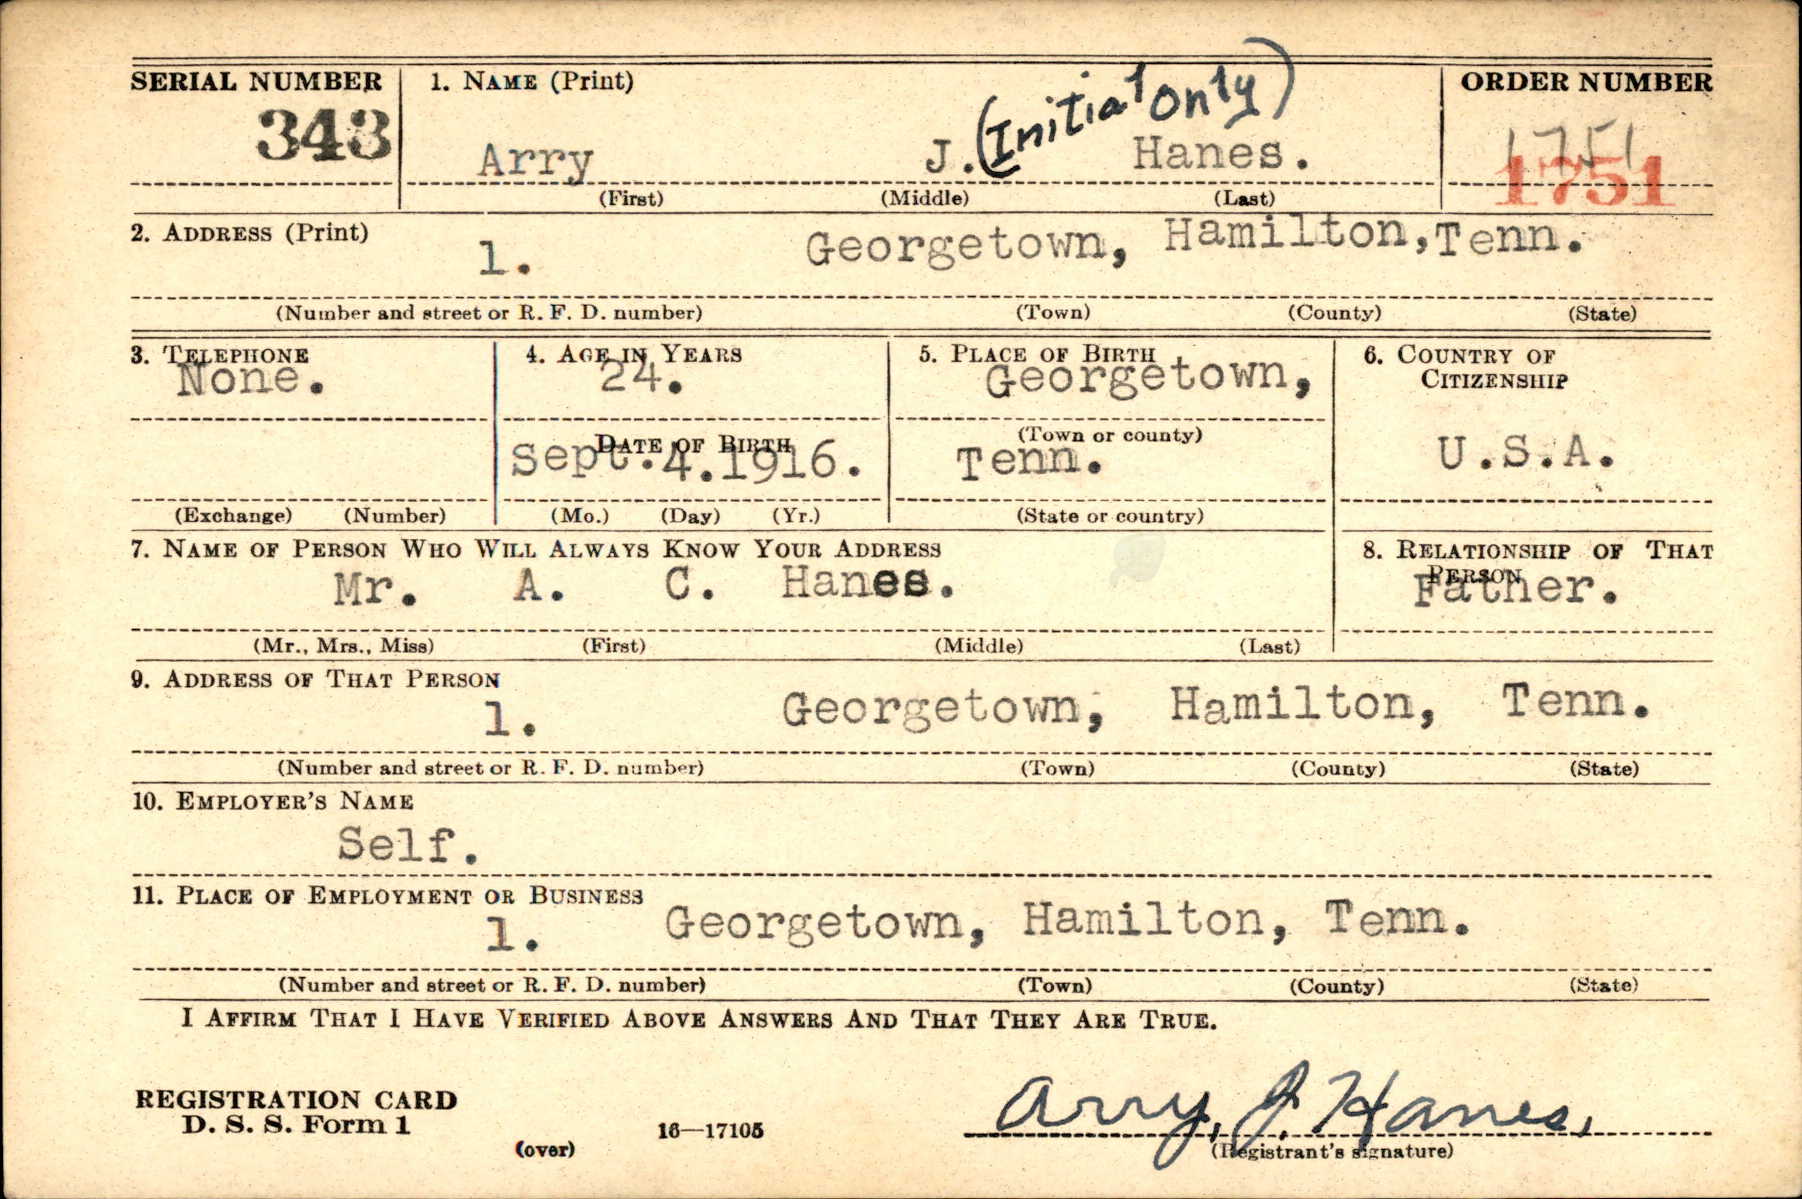 SERIAL NUMBER 1. NAME (Print) ORDER NUMBER
343 Arry J. (Initial only) Hanes. 1751
1751
(First) (Middle) (Last)
2. ADDRESS (Print)
1. Georgetown, Hamilton, Tenn.
(Number and street or R. F. D. number) (Town) (County) (State)
3. TELEPHONE 4. AGE IN YEARS 5. PLACE OF BIRTH 6. COUNTRY OF
CITIZENSHIP
None. 24. Georgetown,
DATE OF BIRTH (Town or county)
Sept. 4. 1916. Tenn. U.S.A.
(Exchange) (Number) (Mo.) (Day) (Yr.) (State or country)
7. NAME OF PERSON WHO WILL ALWAYS KNOW YOUR ADDRESS 8. RELATIONSHIP OF THAT
PERSON
Mr. A. C. Hanes. Father.
(Mr., Mrs., Miss) (First) (Middle) (Last)
9. ADDRESS OF THAT PERSON
1. Georgetown, Hamilton, Tenn.
(Number and street or R. F. D. number) (Town) (County) (State)
10. EMPLOYER'S NAME
Self.
11. PLACE OF EMPLOYMENT OR BUSINESS
1. Georgetown, Hamilton, Tenn.
(Number and street or R. F. D. number) (Town) (County) (State)
I AFFIRM THAT I HAVE VERIFIED ABOVE ANSWERS AND THAT THEY ARE TRUE.
REGISTRATION CARD
D. S. S. Form 1
(over) 16—17105
Arry, J. Hanes,
(Registrant's signature)